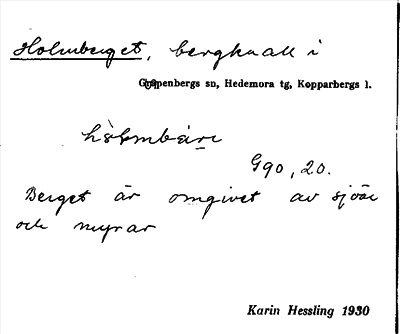 Holmberget, bergknall i
Grangärpenbergs sn, Hedemora tg, Kopparbergs l.
G90, 20.
Berget är omgivet av sjöar
och myrar
Karin Hessling 1930